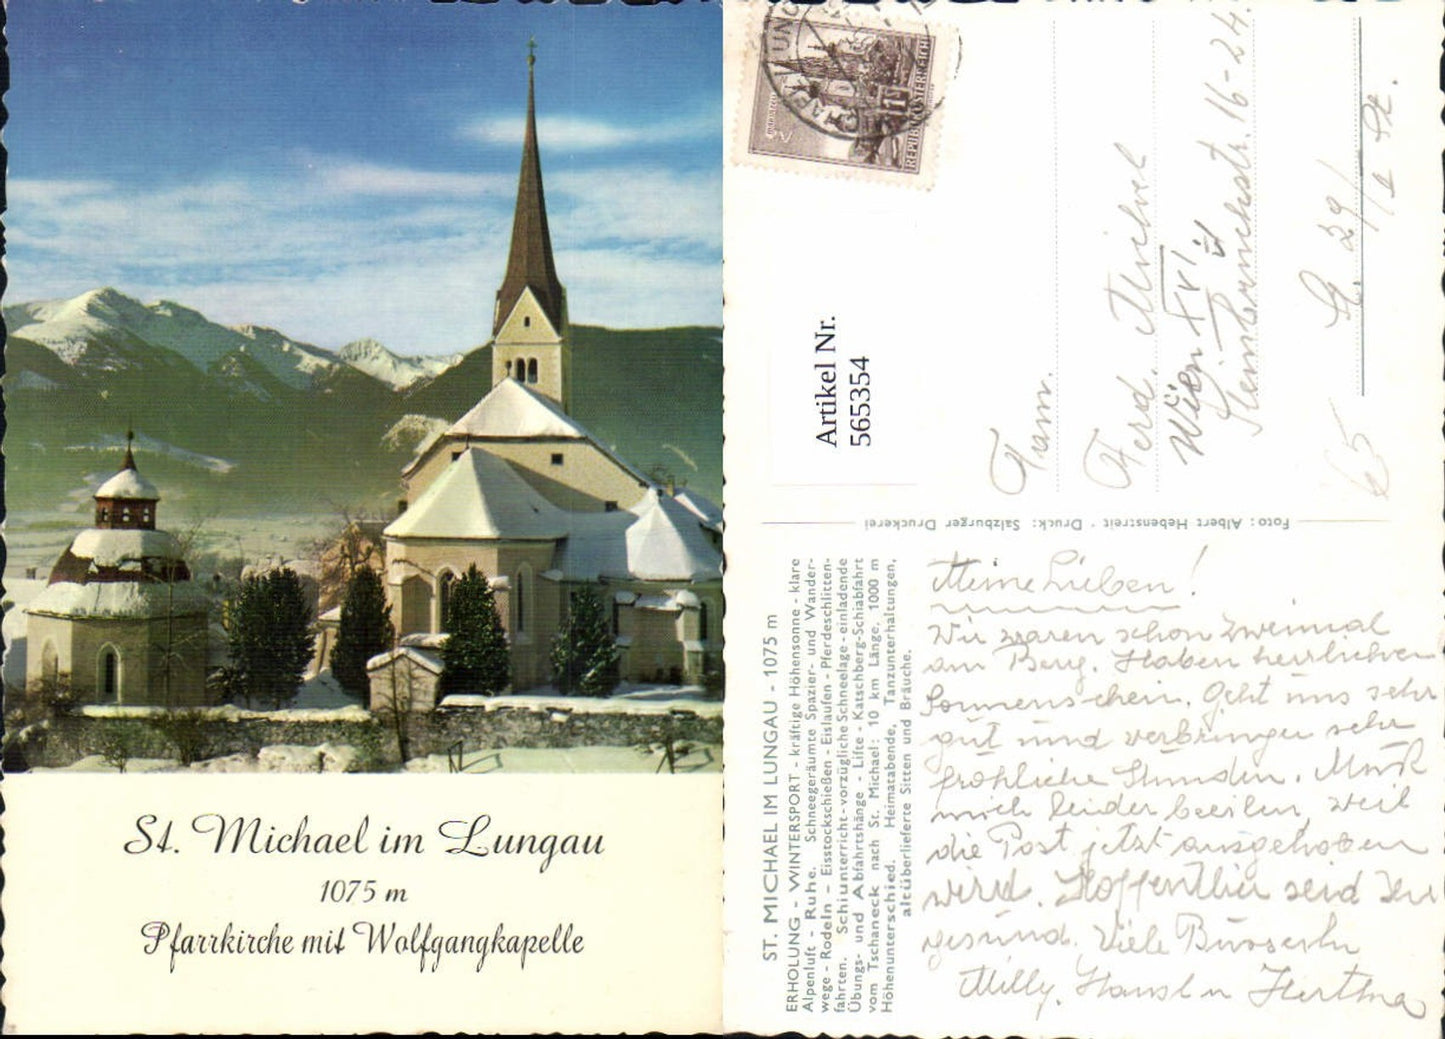 St. Michael im Lungau
1075 m
Pfarrkirche mit Wolfgangkapelle
REPUBLIK ÖSTERREICH
Artikel Nr.
565354
Fam.
Ferd.
Wien XVI
16-24.
29/
St.
65
Foto: Albert Hebenstreit · Druck: Salzburger Druckerei
ST. MICHAEL IM LUNGAU - 1075 m
ERHOLUNG - WINTERSPORT - kräftige Höhensonne - klare
Alpenluft - Ruhe. Schneegeräumte Spazier- und Wander-
wege - Rodeln - Eisstockschießen - Eislaufen - Pferdeschlitten-
fahrten. Schiunterricht - vorzügliche Schneelage - einladende
Übungs- und Abfahrtshänge - Lifte - Katschberg-Schiabfahrt
vom Tschaneck nach St. Michael: 10 km Länge, 1000 m
Höhenunterschied. Heimatabende, Tanzunterhaltungen,
altüberlieferte Sitten und Bräuche.
Meine Lieben!
Wir waren schon zweimal
am Berg. Haben herrlichen
Sonnenschein. Geht uns sehr
gut und verbringen sehr
fröhliche Stunden. Muß
mich leider beeilen, weil
die Post jetzt ausgehoben
wird. Hoffentlich seid Ihr
gesund. Viele Busserln
Milly, Hansl u Hertha